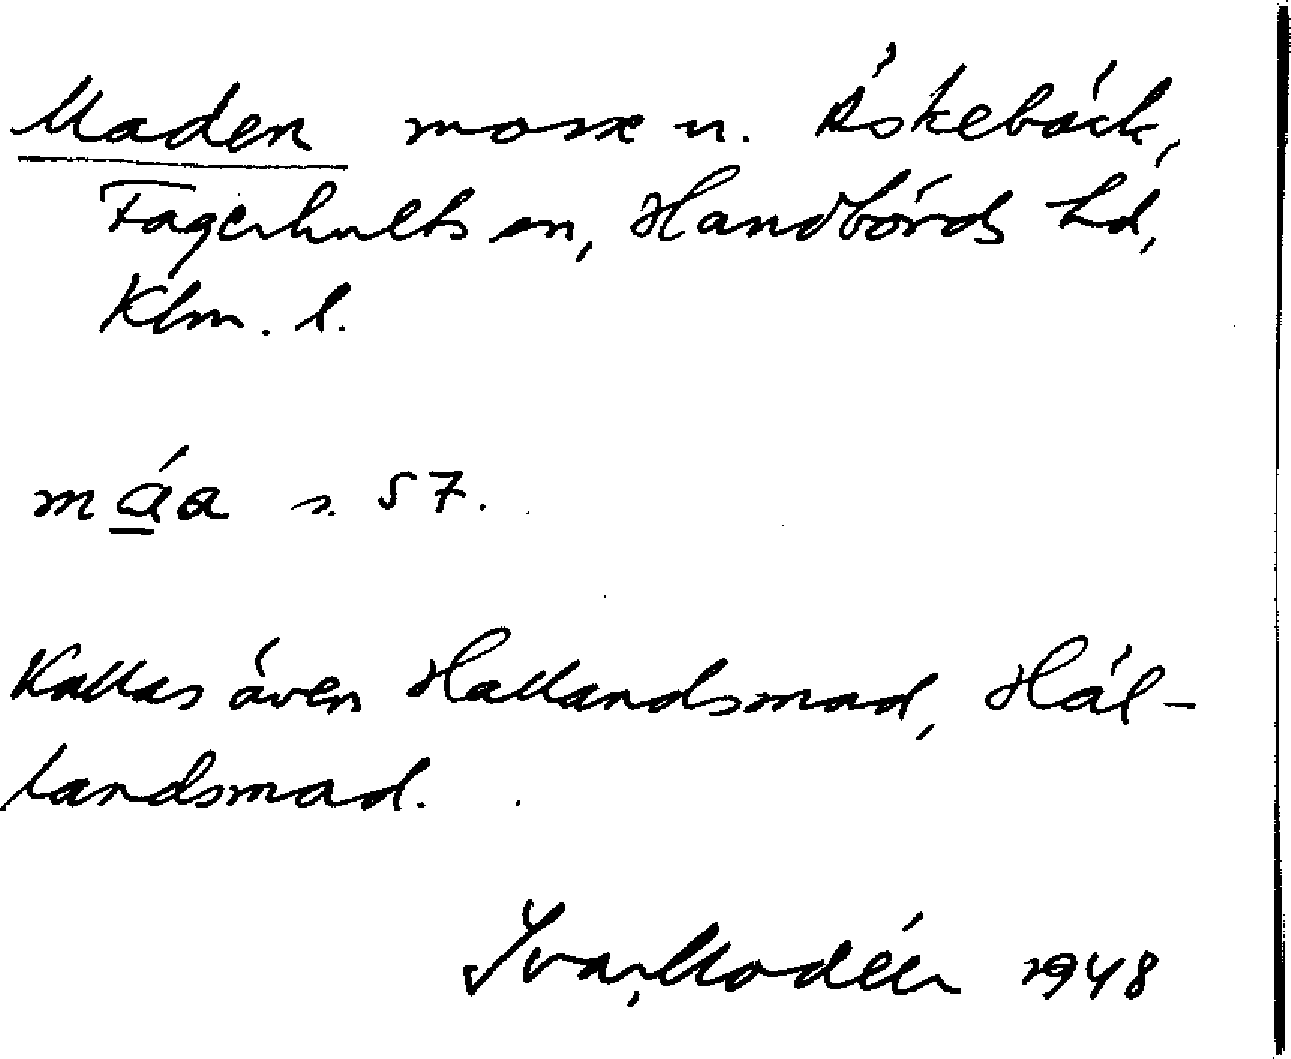 Maden mosse u. Äskebäck,
Fagerhults sn, Handbörds hd,
Klm. l.
måa s. 57.
Kallas även Hallandsmad, Häl-
landsmad.
Ivar Modéer 1948